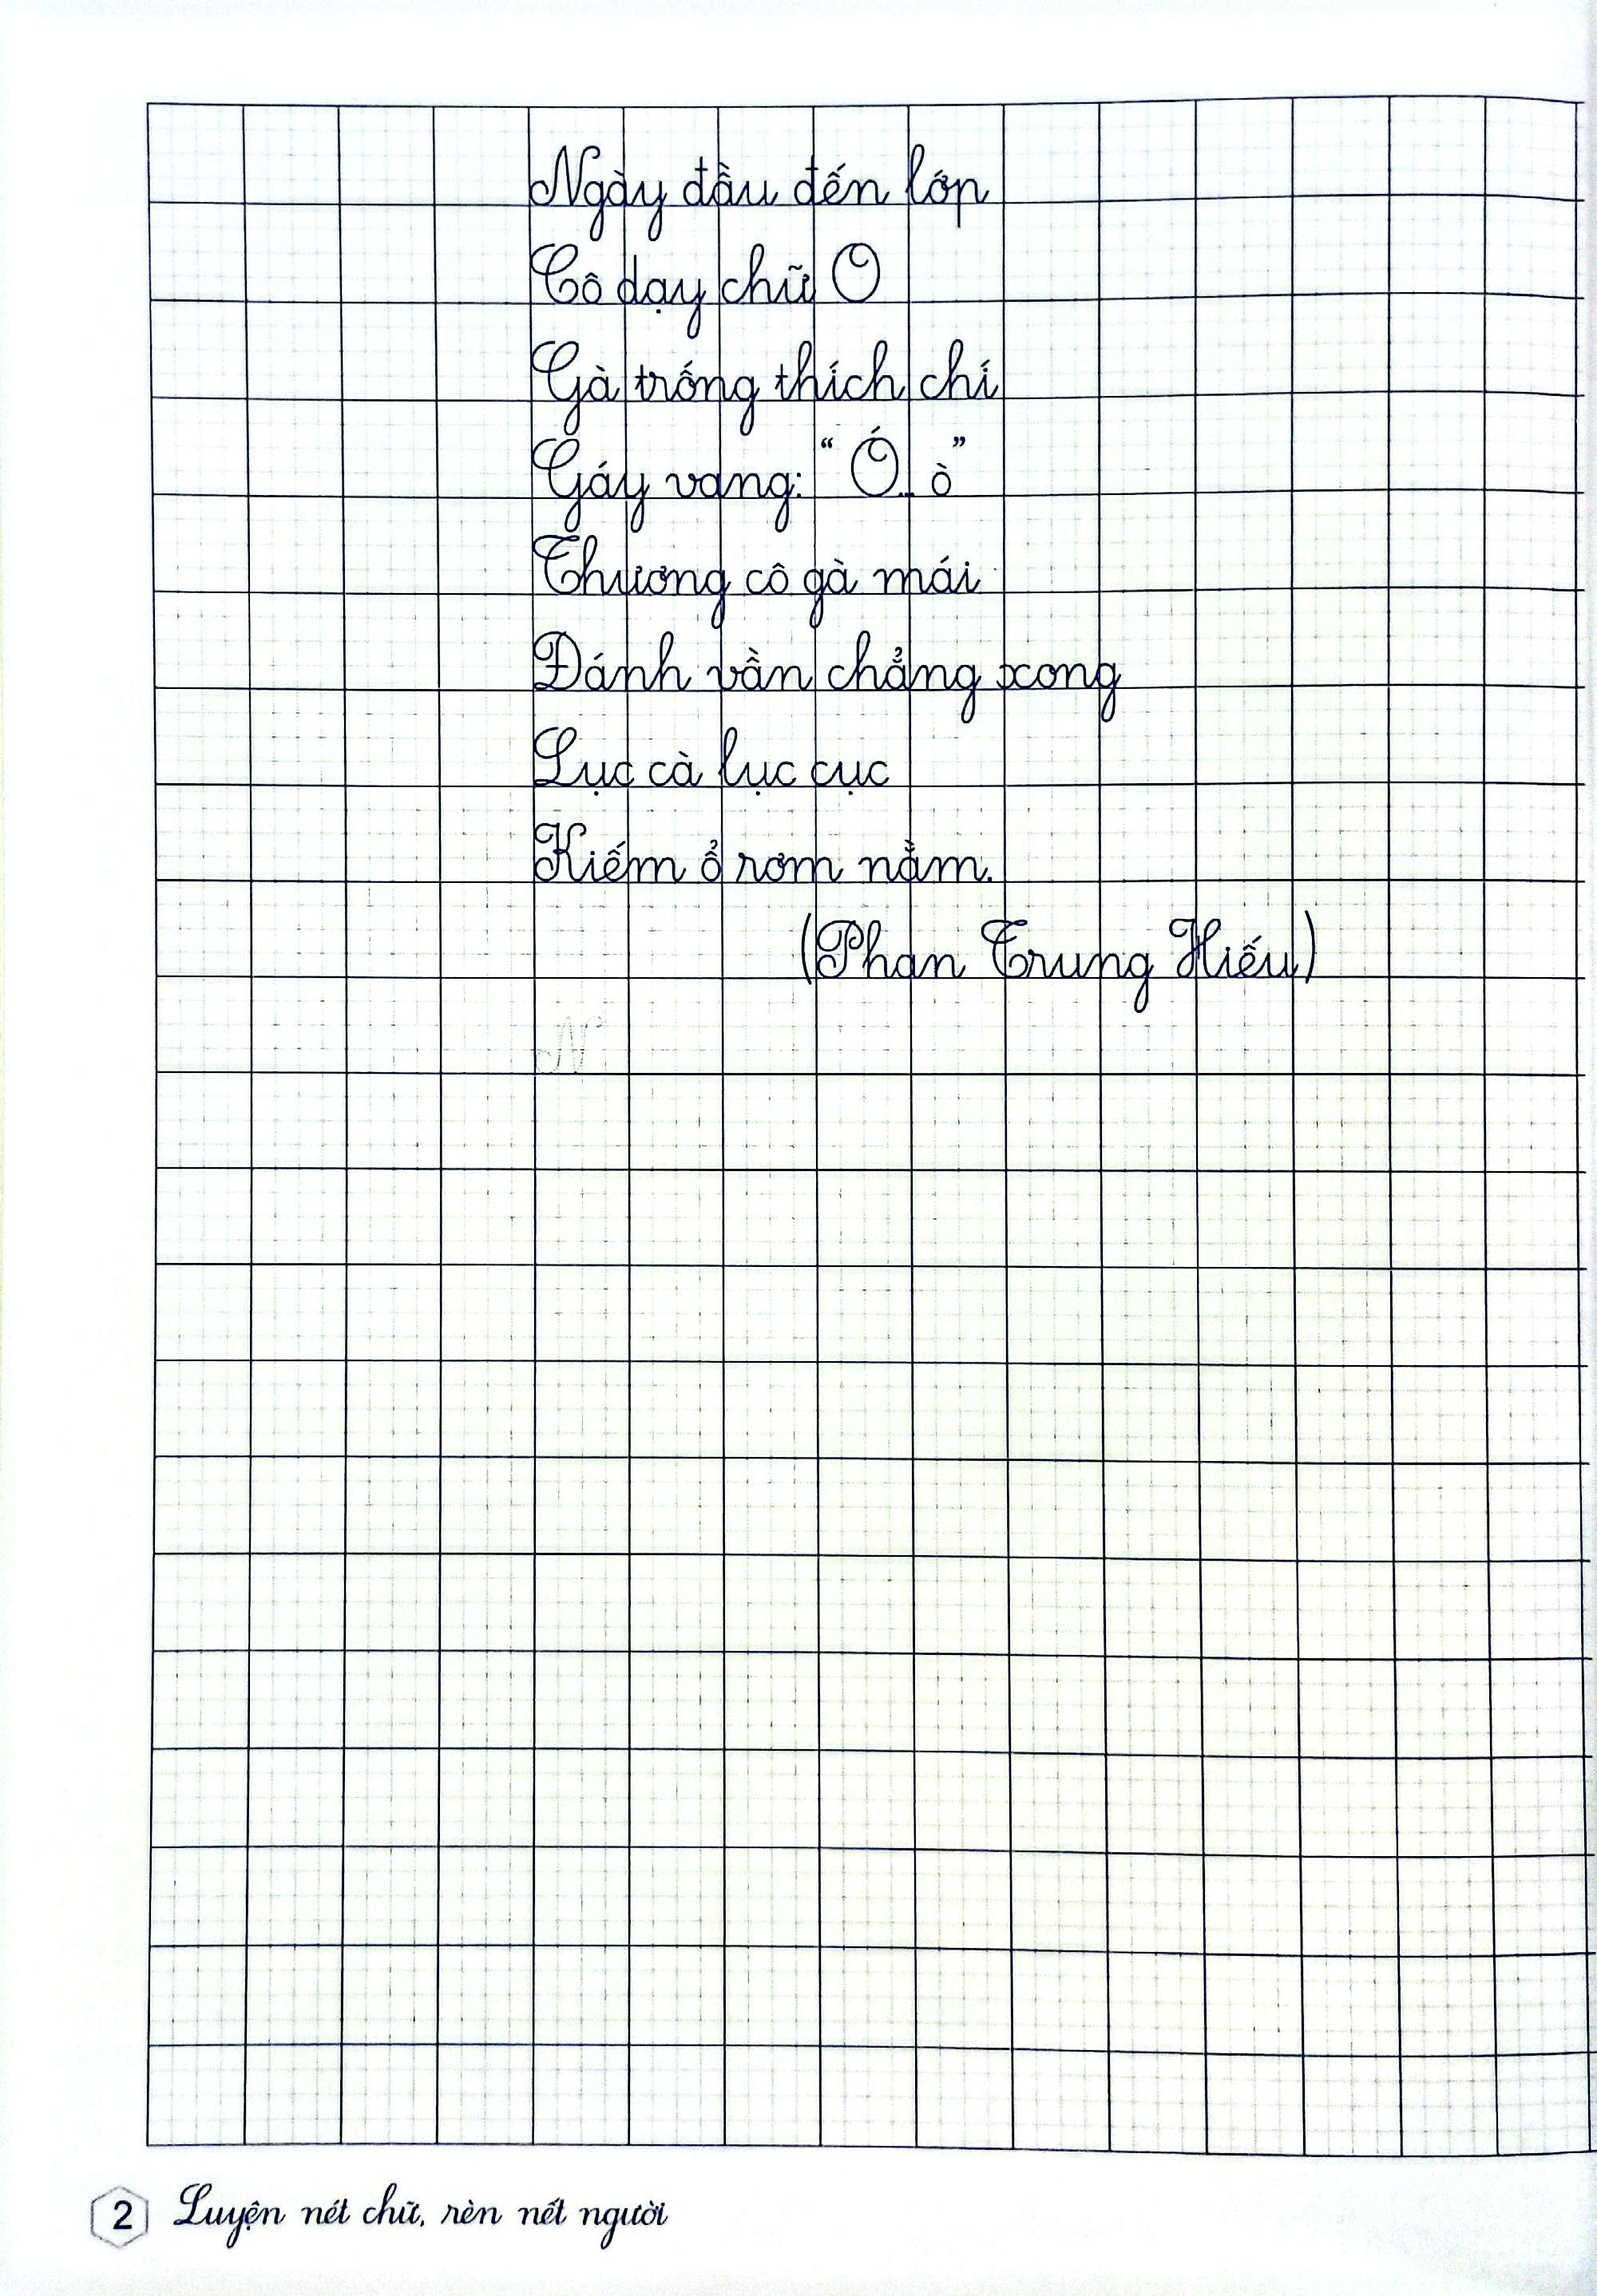 Ngày đầu đến lớp
Cô dạy chữ O
Gà trống thích chí
Gáy vang: “Ó... ò”
Thương cô gà mái
Đánh vần chẳng xong
Lục cà lục cục
Kiếm ổ rơm nằm.
(Phan Trung Hiếu)
N
2 Luyện nét chữ, rèn nết người